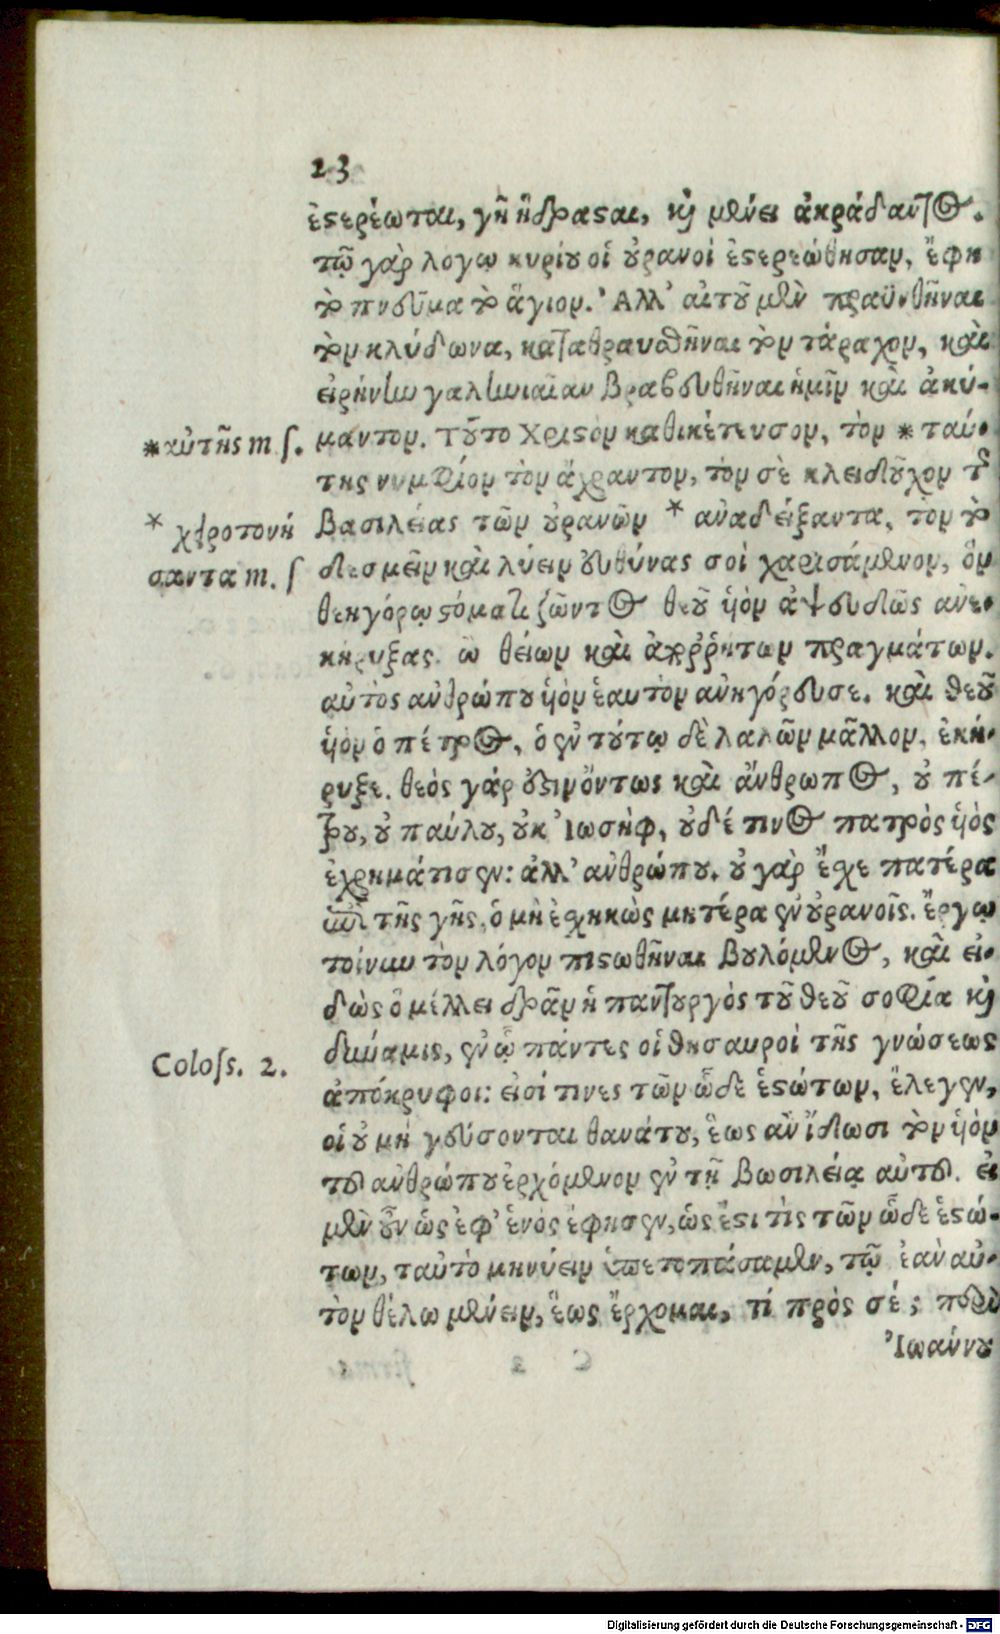 23
ἐστερέωται, γῆ ἥδρασται, καὶ μένει ἀκράδαντος.
τῷ γὰρ λογῳ κυρίου οἱ οὐρανοὶ ἐστερεώθησαν, ἔφη
τὸ πνεῦμα τὸ ἅγιον. Ἀλλ' αἰτοῦμεν πραϋνθῆναι
τὸν κλύδωνα, καταθραυσθῆναι τὸν τάραχον, καὶ
εἰρήνην γαληνιαῖαν βραβευθῆναι ἡμῖν καὶ ἀκύ-
*αὐτῆς m. ſ.
μαντον. τοῦτο Χριστὸν καθικέτευσον, τὸν * ταύ-
της νυμφίον τὸν ἄχραντον, τὸν σὲ κλειδοῦχον τῆς
* χειροτονή
βασιλείας τῶν οὐρανῶν * ἀναδείξαντα, τὸν τὸ
σαντα m. ſ
δεσμεῖν καὶ λύειν εὐθύνας σοὶ χαρισάμενον, ὃν
θεηγόρῳ στόματι ζῶντος θεοῦ υἱὸν ἀψευδῶς ἀνε-
κήρυξας. ὢ θείων καὶ ἀπορρήτων πραγμάτων.
αὐτὸς ἀνθρώπου υἱὸν ἑαυτὸν ἀνηγόρευσε. καὶ θεοῦ
υἱὸν ὁ πέτρος, ὁ ἐν τούτῳ δὲ λαλῶν μᾶλλον, ἐκή-
ρυξε. θεὸς γάρ ἐστιν ὄντως καὶ ἄνθρωπος, οὐ πέ-
τρου, οὐ παύλου, οὐκ Ἰωσὴφ, οὐδέ τινος πατρὸς υἱὸς
ἐχρημάτισεν: ἀλλ' ἀνθρώπου. οὐ γὰρ ἔχε πατέρα
ἐπὶ τῆς γῆς, ὁ μὴ ἐχηκὼς μητέρα ἐν οὐρανοῖς. ἔργῳ
τοίνυν τὸν λόγον πιστωθῆναι βουλόμενος, καὶ εἰ-
δὼς ὃ μέλλει δρᾶν ἡ παντουργὸς τοῦ θεοῦ σοφία καὶ
Coloſs. 2.
δύναμις, ἐν ᾧ πάντες οἱ θησαυροὶ τῆς γνώσεως
ἀπόκρυφοι: εἰσί τινες τῶν ὧδε ἑστώτων, ἔλεγεν,
οἱ οὐ μὴ γεύσονται θανάτου, ἕως ἂν ἴδωσι τὸν υἱὸν
τοῦ ἀνθρώπου ἐρχόμενον ἐν τῇ βασιλείᾳ αὐτοῦ. εἰ
μὲν οὖν ὡς ἐφ' ἑνὸς ἔφησεν, ὡς ἔστι τὶς τῶν ὧδε ἑστώ-
των, ταὐτὸ μηνύειν ὑπετοπάσαμεν, τῷ ἐὰν αὐ-
τὸν θέλω μένειν, ἕως ἔρχομαι, τί πρὸς σέ; περὶ
Ἰωάννου
Digitalisierung gefördert durch die Deutsche Forschungsgemeinschaft - DFG